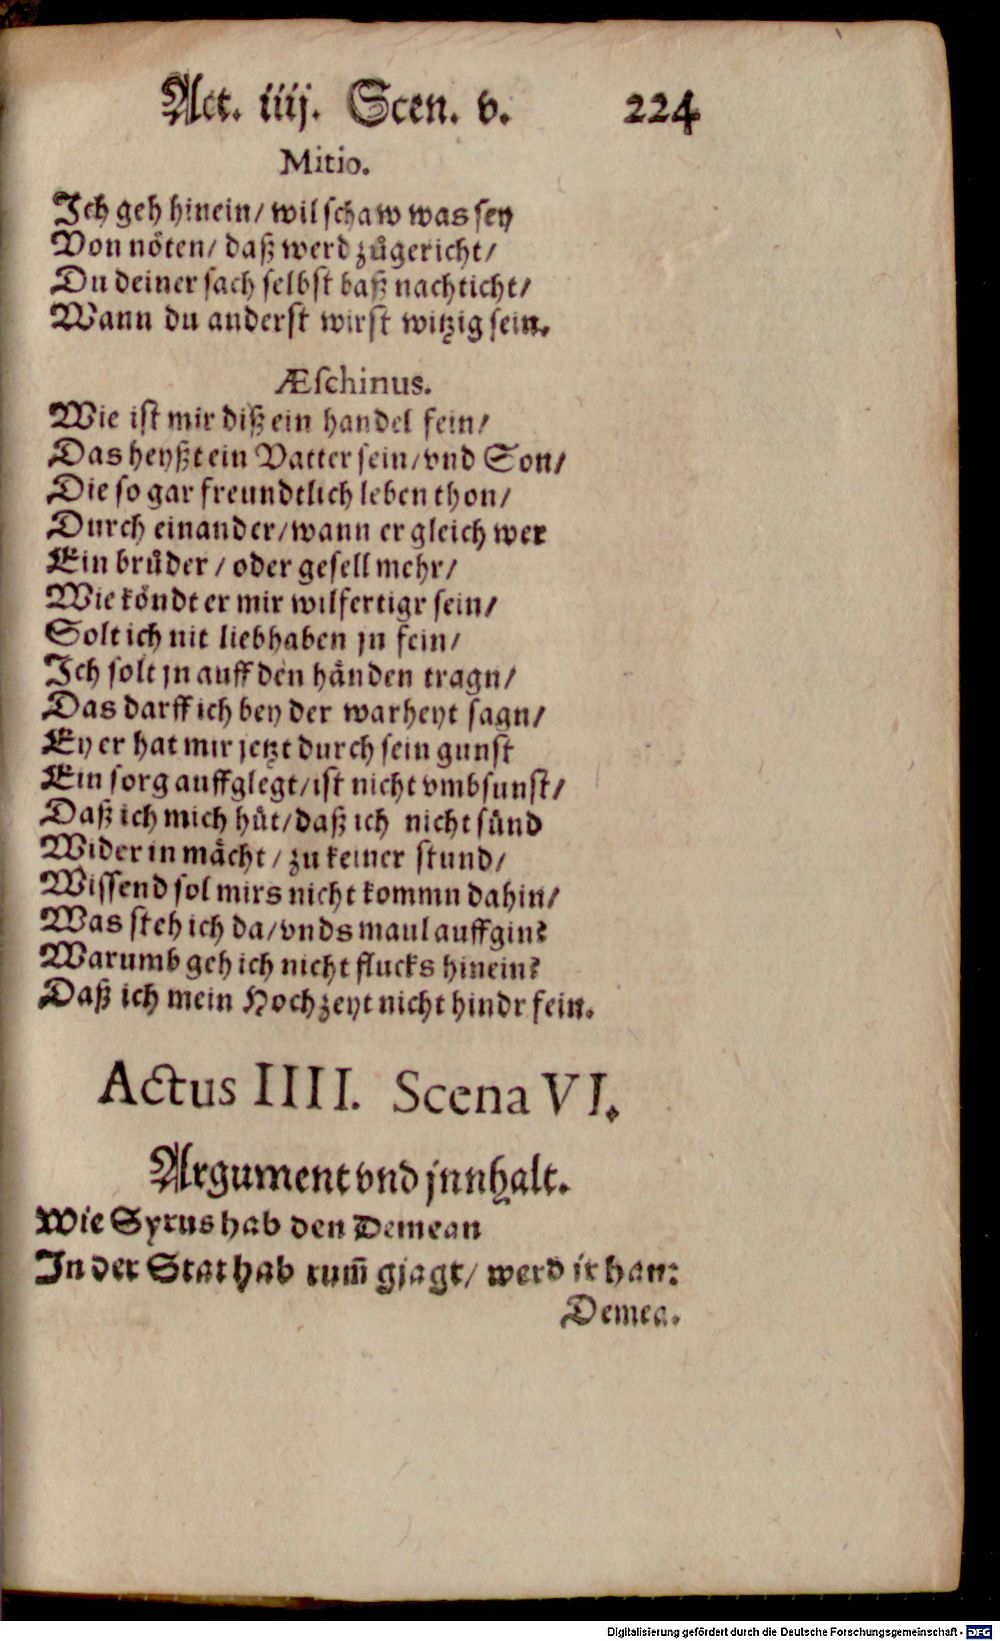 Act. iiij. Scen. v. 224
Mitio.
Ich geh hinein/ wil schaw was sey
Von nöten/ daß werd zůgericht/
Du deiner sach selbst baß nachticht/
Wann du anderst wirst witzig sein.
Æschinus.
Wie ist mir diß ein handel fein/
Das heyßt ein Vatter sein/ vnd Son/
Die so gar freundtlich leben thon/
Durch einander/ wann er gleich wer
Ein brůder / oder gesell mehr/
Wie köndt er mir wilfertigr sein/
Solt ich nit liebhaben jn fein/
Ich solt jn auff den händen tragn/
Das darff ich bey der warheyt sagn/
Ey er hat mir jetzt durch sein gunst
Ein sorg auffglegt/ ist nicht vmbsunst/
Daß ich mich hüt/ daß ich nicht sünd
Wider in mächt / zu keiner stund/
Wissend sol mirs nicht kommn dahin/
Was steh ich da/ vnds maul auffgin?
Warumb geh ich nicht flucks hinein?
Daß ich mein Hochzeyt nicht hindr fein.
Actus IIII. Scena VI.
Argument vnd jnnhalt.
Wie Syrus hab den Demean
In der Stat hab rum̃ gjagt/ werd ir han:
Demea.
Digitalisierung gefördert durch die Deutsche Forschungsgemeinschaft - DFG